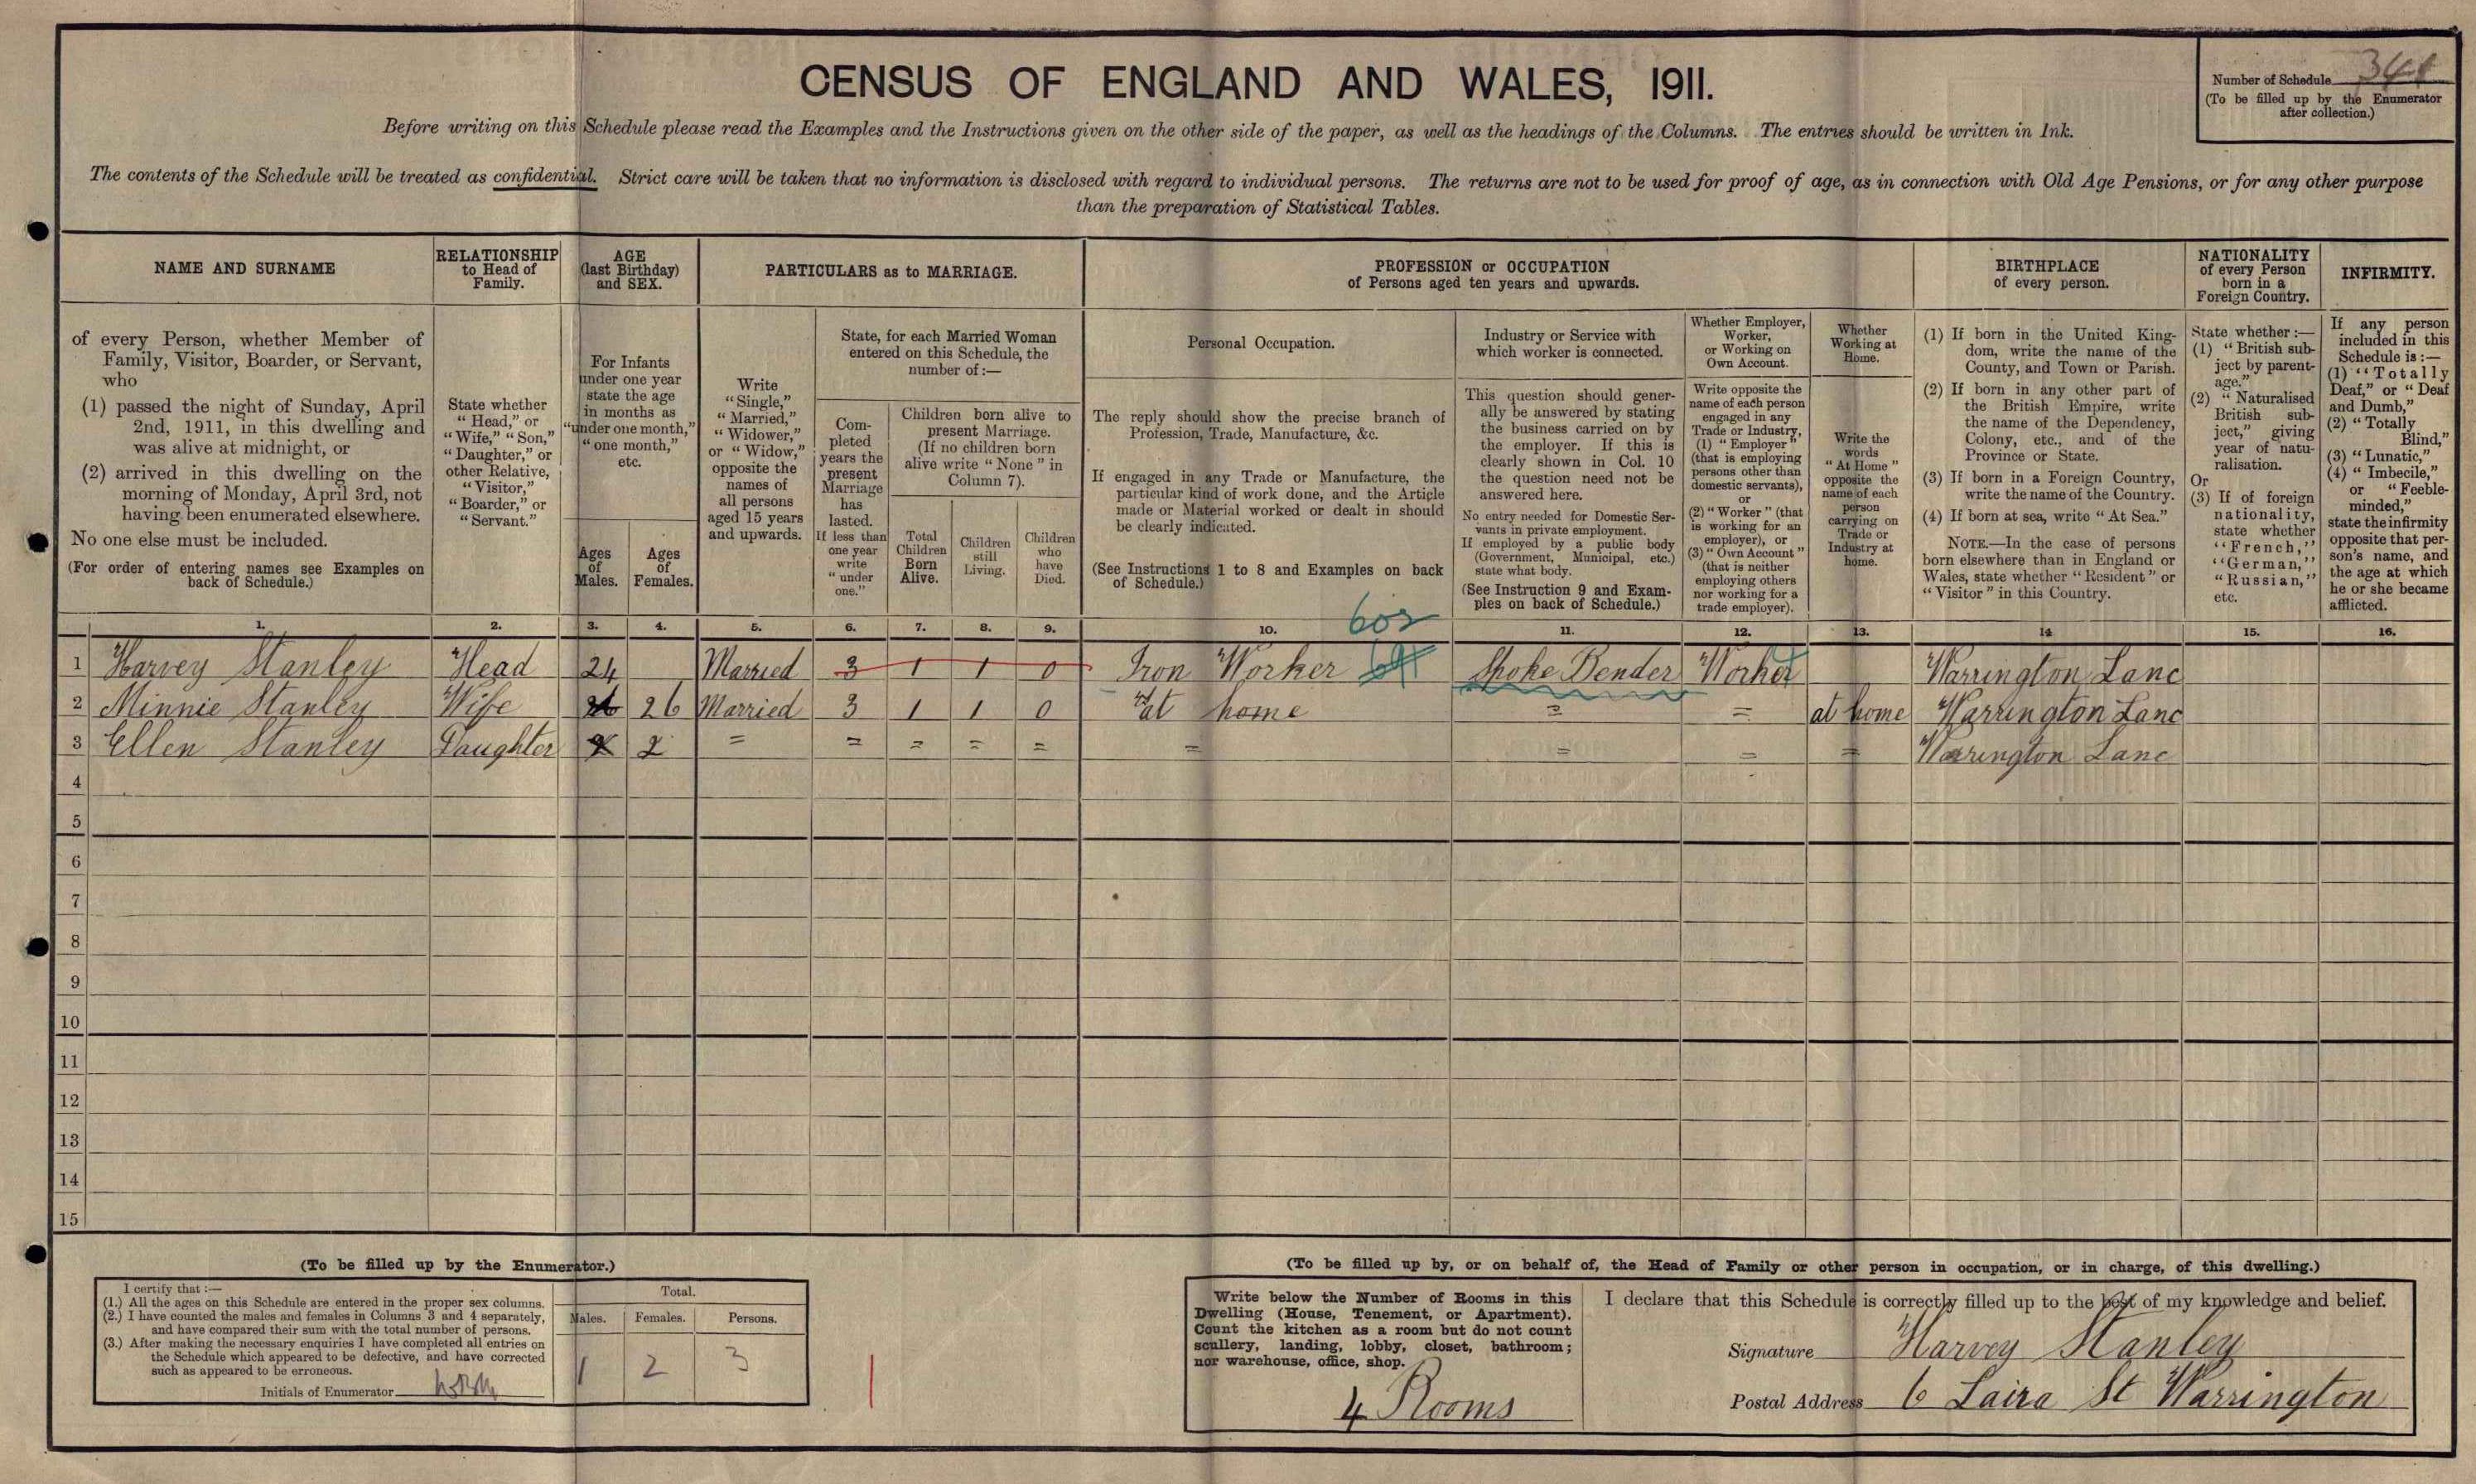 CENSUS OF ENGLAND AND WALES, 1911.
Number of Schedule
(To be filled up by the Enumerator
after collection.)
Before writing on this Schedule please read the Examples and the Instructions given on the other side of the paper, as well as the headings of the Columns. The entries should be written in Ink.
The contents of the Schedule will be treated as confidential. Strict care will be taken that no information is disclosed with regard to individual persons. The returns are not to be used for proof of age, as in connection with Old Age Pensions, or for any other purpose
than the preparation of Statistical Tables.
NAME AND SURNAME
of every Person, whether Member of
Family, Visitor, Boarder, or Servant,
who
(1) passed the night of Sunday, April
2nd, 1911, in this dwelling and
was alive at midnight, or
(2) arrived in this dwelling on the
morning of Monday, April 3rd, not
having been enumerated elsewhere.
No one else must be included.
(For order of entering names see Examples on
back of Schedule.)
RELATIONSHIP
to Head of
Family.
State whether
“Head,” or
“Wife,” “Son,”
“Daughter,” or
other Relative,
“Visitor,”
“Boarder,” or
“Servant.”
AGE
(last Birthday)
and SEX.
For Infants
under one year
state the age
in months as
“under one month,”
“one month,”
etc.
Ages
of
Males.
Ages
of
Females.
PARTICULARS as to MARRIAGE.
Write
“Single,”
“Married,”
“Widower,”
or “Widow,”
opposite the
names of
all persons
aged 15 years
and upwards.
State, for each Married Woman
entered on this Schedule, the
number of :—
Com-
pleted
years the
present
Marriage
has
lasted.
If less than
one year
write
“under
one.”
Children born alive to
present Marriage.
(If no children born
alive write “None” in
Column 7).
Total
Children
Born
Alive.
Children
still
Living.
Children
who
have
Died.
PROFESSION or OCCUPATION
of Persons aged ten years and upwards.
Personal Occupation.
The reply should show the precise branch of
Profession, Trade, Manufacture, &c.
If engaged in any Trade or Manufacture, the
particular kind of work done, and the Article
made or Material worked or dealt in should
be clearly indicated.
(See Instructions 1 to 8 and Examples on back
of Schedule.)
Industry or Service with
which worker is connected.
This question should gener-
ally be answered by stating
the business carried on by
the employer. If this is
clearly shown in Col. 10
the question need not be
answered here.
No entry needed for Domestic Ser-
vants in private employment.
If employed by a public body
(Government, Municipal, etc.)
state what body.
(See Instruction 9 and Exam-
ples on back of Schedule.)
Whether Employer,
Worker,
or Working on
Own Account.
Write opposite the
name of each person
engaged in any
Trade or Industry,
(1) “Employer”
(that is employing
persons other than
domestic servants),
or
(2) “Worker” (that
is working for an
employer), or
(3) “Own Account”
(that is neither
employing others
nor working for a
trade employer).
Whether
Working at
Home.
Write the
words
“At Home”
opposite the
name of each
person
carrying on
Trade or
Industry at
home.
BIRTHPLACE
of every person.
(1) If born in the United King-
dom, write the name of the
County, and Town or Parish.
(2) If born in any other part of
the British Empire, write
the name of the Dependency,
Colony, etc., and of the
Province or State.
(3) If born in a Foreign Country,
write the name of the Country.
(4) If born at sea, write “At Sea.”
NOTE.—In the case of persons
born elsewhere than in England or
Wales, state whether “Resident” or
“Visitor” in this Country.
NATIONALITY
of every Person
born in a
Foreign Country.
State whether :—
(1) “British sub-
ject by parent-
age.”
(2) “Naturalised
British sub-
ject,” giving
year of natu-
ralisation.
Or
(3) If of foreign
nationality,
state whether
“French,”
“German,”
“Russian,”
etc.
INFIRMITY.
If any person
included in this
Schedule is :—
(1) “Totally
Deaf,” or “Deaf
and Dumb,”
(2) “Totally
Blind,”
(3) “Lunatic,”
(4) “Imbecile,”
or “Feeble-
minded,”
state the infirmity
opposite that per-
son’s name, and
the age at which
he or she became
afflicted.
1. 2. 3. 4. 5. 6. 7. 8. 9. 10. 11. 12. 13. 14 15. 16.
1 Harvey Stanley Head 24 Married 3 1 1 0 Iron Worker Spoke Bender Worker Warrington Lanc
2 Minnie Stanley Wife 26 Married 3 1 1 0 at home = = at home Warrington Lanc
3 Ellen Stanley Daughter 2 = = = = = = = = = Warrington Lanc
4
5
6
7
8
9
10
11
12
13
14
15
(To be filled up by the Enumerator.)
I certify that :—
(1.) All the ages on this Schedule are entered in the proper sex columns.
(2.) I have counted the males and females in Columns 3 and 4 separately,
and have compared their sum with the total number of persons.
(3.) After making the necessary enquiries I have completed all entries on
the Schedule which appeared to be defective, and have corrected
such as appeared to be erroneous.
Initials of Enumerator
Total.
Males. Females. Persons.
1 2 3
(To be filled up by, or on behalf of, the Head of Family or other person in occupation, or in charge, of this dwelling.)
Write below the Number of Rooms in this
Dwelling (House, Tenement, or Apartment).
Count the kitchen as a room but do not count
scullery, landing, lobby, closet, bathroom;
nor warehouse, office, shop.
4 Rooms
I declare that this Schedule is correctly filled up to the best of my knowledge and belief.
Signature Harvey Stanley
Postal Address 6 Laira St Warrington